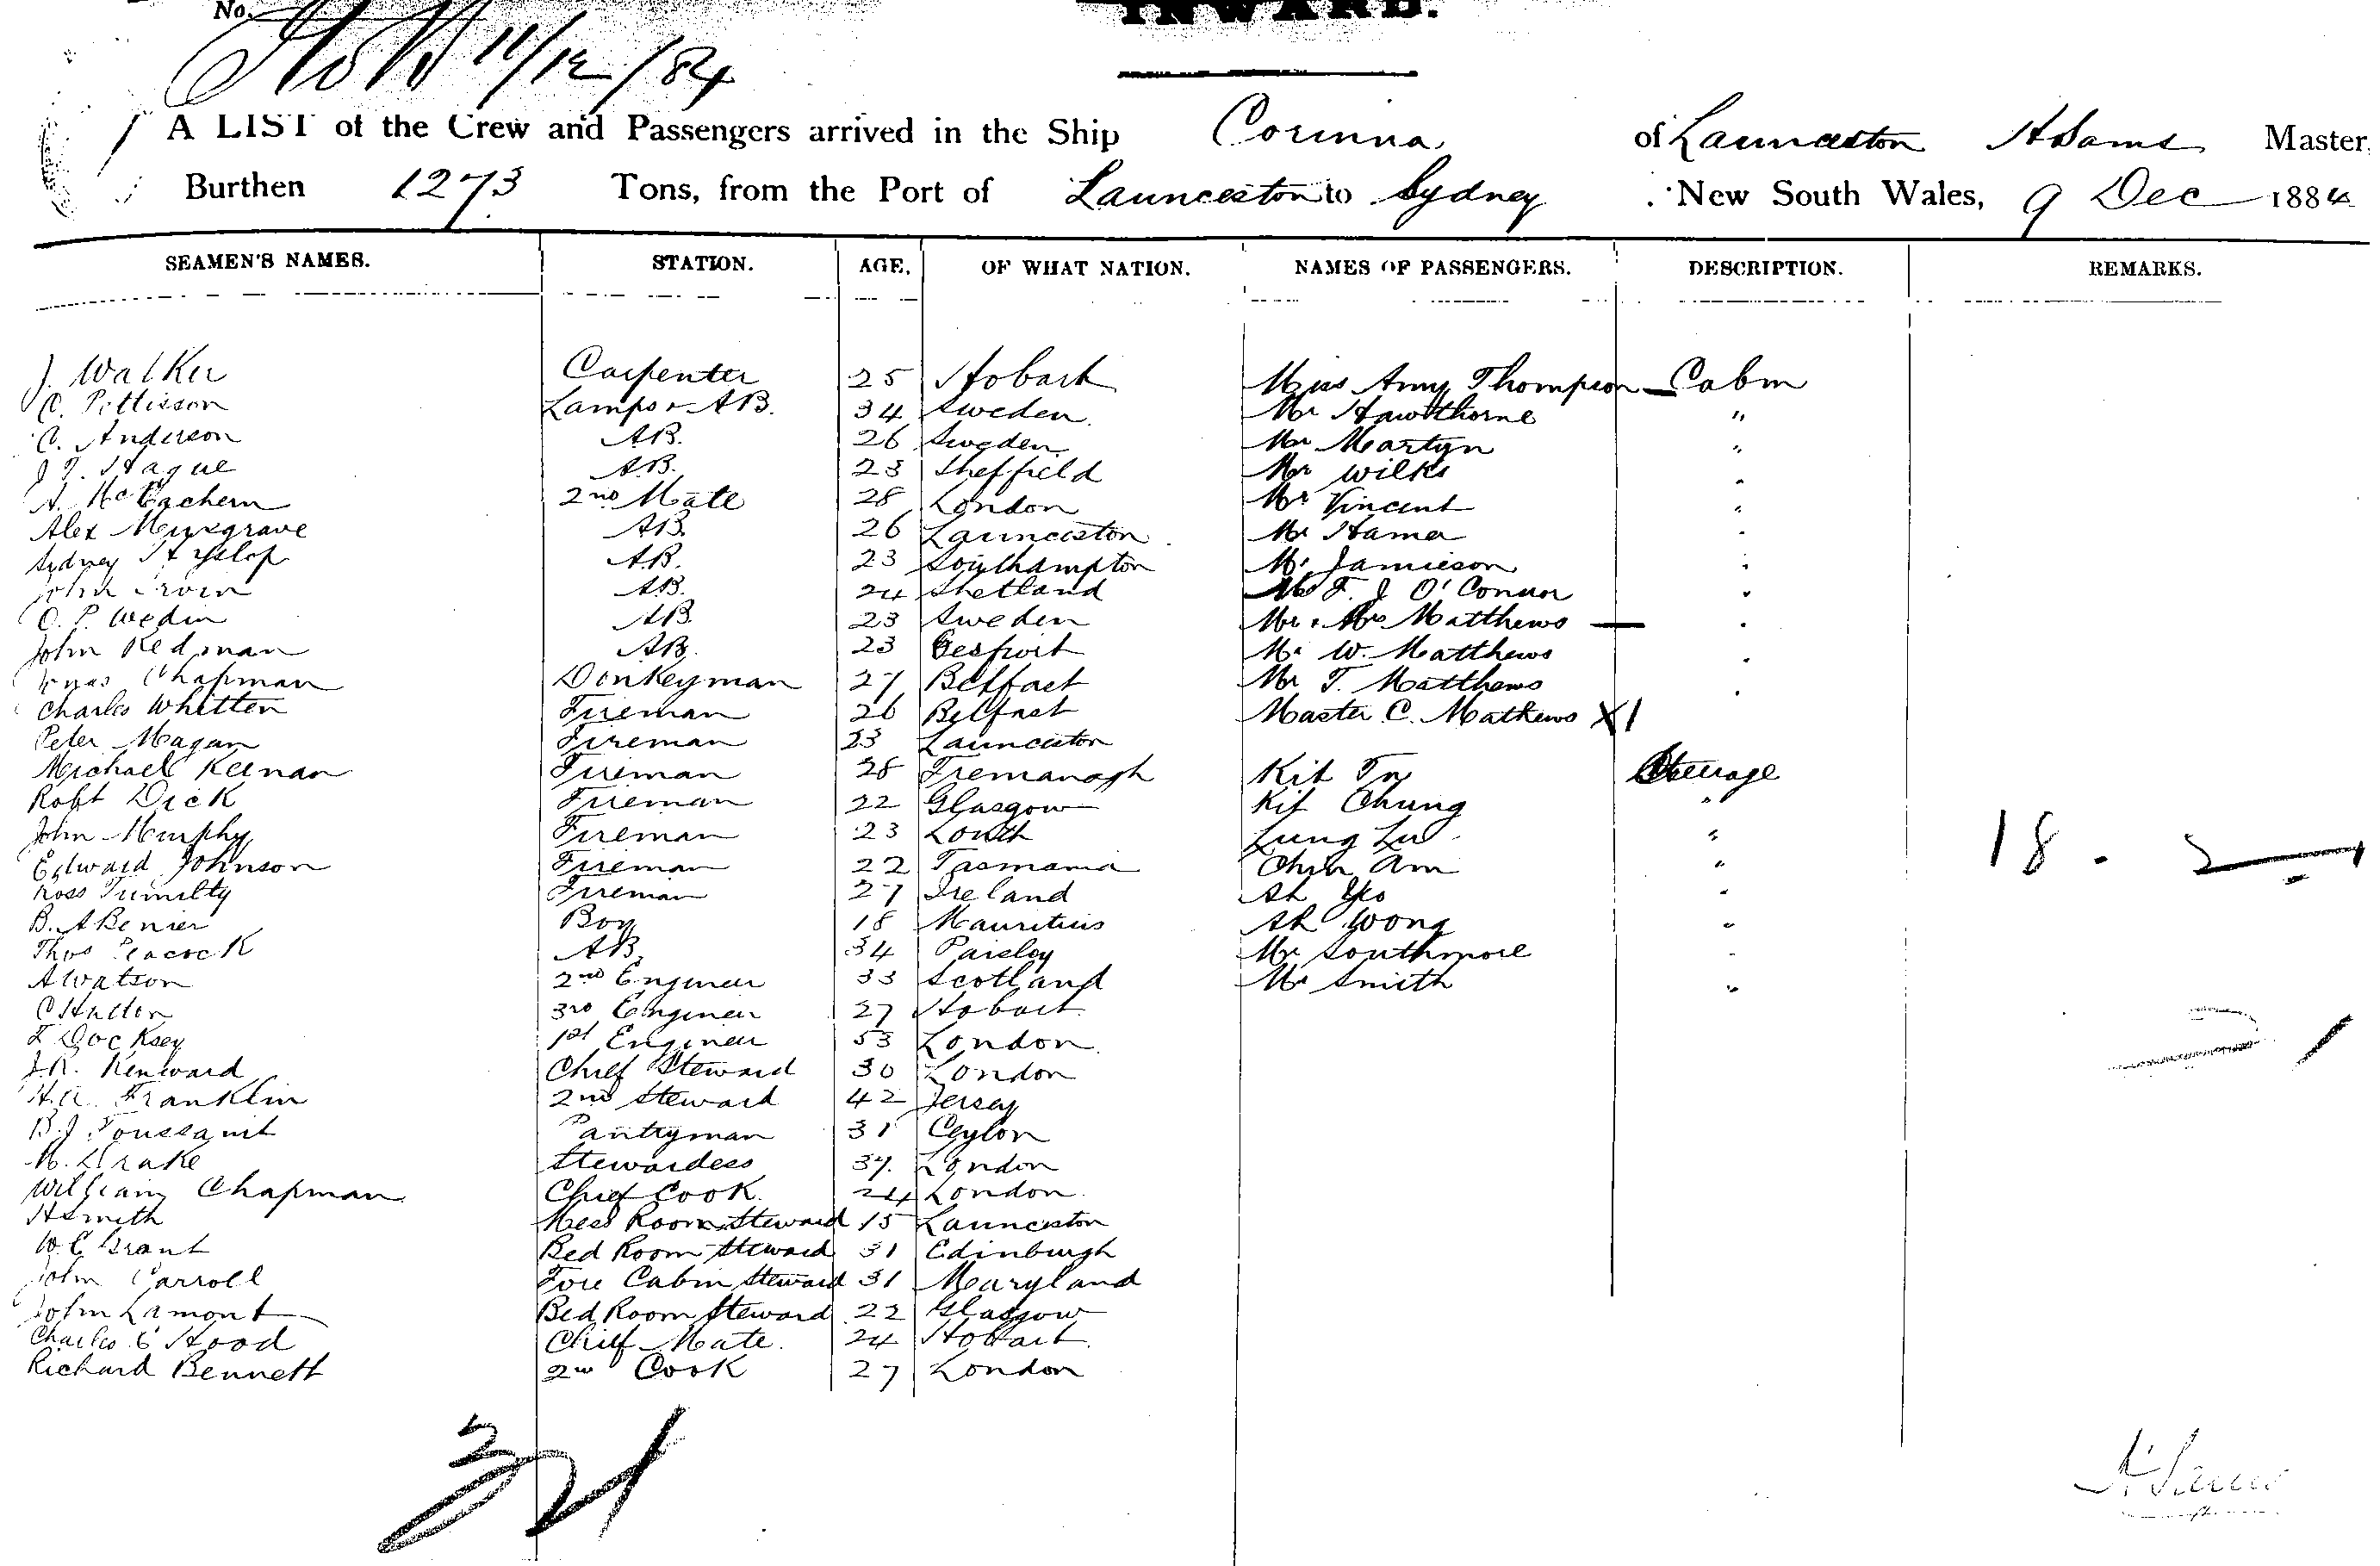 No.
INWARD.
11/12/84
A LIST of the Crew and Passengers arrived in the Ship Corinna of Launceston Adams Master,
Burthen 1273 Tons, from the Port of Launceston to Sydney New South Wales, 9 Dec 1884
SEAMEN'S NAMES. STATION. AGE. OF WHAT NATION. NAMES OF PASSENGERS. DESCRIPTION. REMARKS.
J. Walker Carpenter 25 Hobart Miss Amy Thompson Cabin
C. Pettisson Lamps & AB. 34 Sweden Mr Hawthorne "
C. Anderson AB. 26 Sweden Mr Martyn "
J T. Hague AB. 23 Sheffield Mr Wilks "
A. McEachern 2nd Mate 28 London Mr Vincent "
Alex Musgrave AB. 26 Launceston Mr Hama "
Sydney Hyslop AB. 23 Southampton Mr Jamieson "
John AB. 24 Shetland F. J O'Connor "
O. P. Wedin AB. 23 Sweden Mr & Mrs Matthews "
John Redman AB. 23 Gosport Mr W. Matthews "
Chapman Donkeyman 27 Belfast Mr T. Matthews "
Charles Whitten Fireman 26 Belfast Master C. Mathews X1
Peter Magan Fireman 23 Launceston
Michael Keenan Fireman 28 Fremanagh Kit Steerage
Robt Dick Fireman 22 Glasgow Kit Chung "
John Murphy Fireman 23 Louth Lung Lu "
Edward Johnson Fireman 22 Tasmania Chin Am "
Ross Fireman 27 Ireland Ah Yeo "
B. Boy 18 Mauritius Ah Wong "
Thos Peacock AB. 34 Paisley Mr Southmore "
A Watson 2nd Engineer 33 Scotland Mr Smith "
C Hutton 3rd Engineer 27 Hobart
F Docksey 1st Engineer 53 London
J.R. Kenward Chief Steward 30 London
H.A. Franklin 2nd Steward 42 Jersey
B.J Toussaint Pantryman 31 Ceylon
M. Drake Stewardess 37. London
William Chapman Chief Cook. 24 London
H Smith Mess Room Steward 15 Launceston
W. C Grant Bed Room Steward 31 Edinburgh
John Carroll Fore Cabin Steward 31 Maryland
John Lamont Bed Room Steward 22 Glasgow
Charles E Hood Chief Mate. 24 Hobart
Richard Bennett 2nd Cook 27 London
18. 2